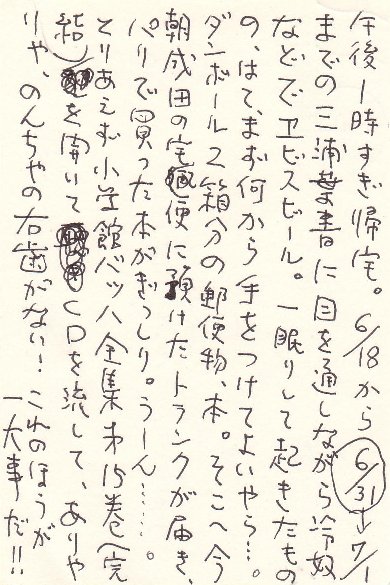 午後1時すぎ帰宅。6/18から6/31→7/1
までの三浦に目を通しながら冷奴
などでヱビスビール。一眠りして起きたもの
の、はて、まず何から手をつけてよいやら…。
ダンボール2箱分の郵便物、本。そこへ今
朝成田の宅便に預けたトランクが届き、
パリで買った本がぎっしり。うーん……。
とりあえず小学館バッハ全集第15巻(完
結)を開いてCDを流して、ありゃ
りゃ、のんちゃの右歯がない!これのほうが
一大事だ!!